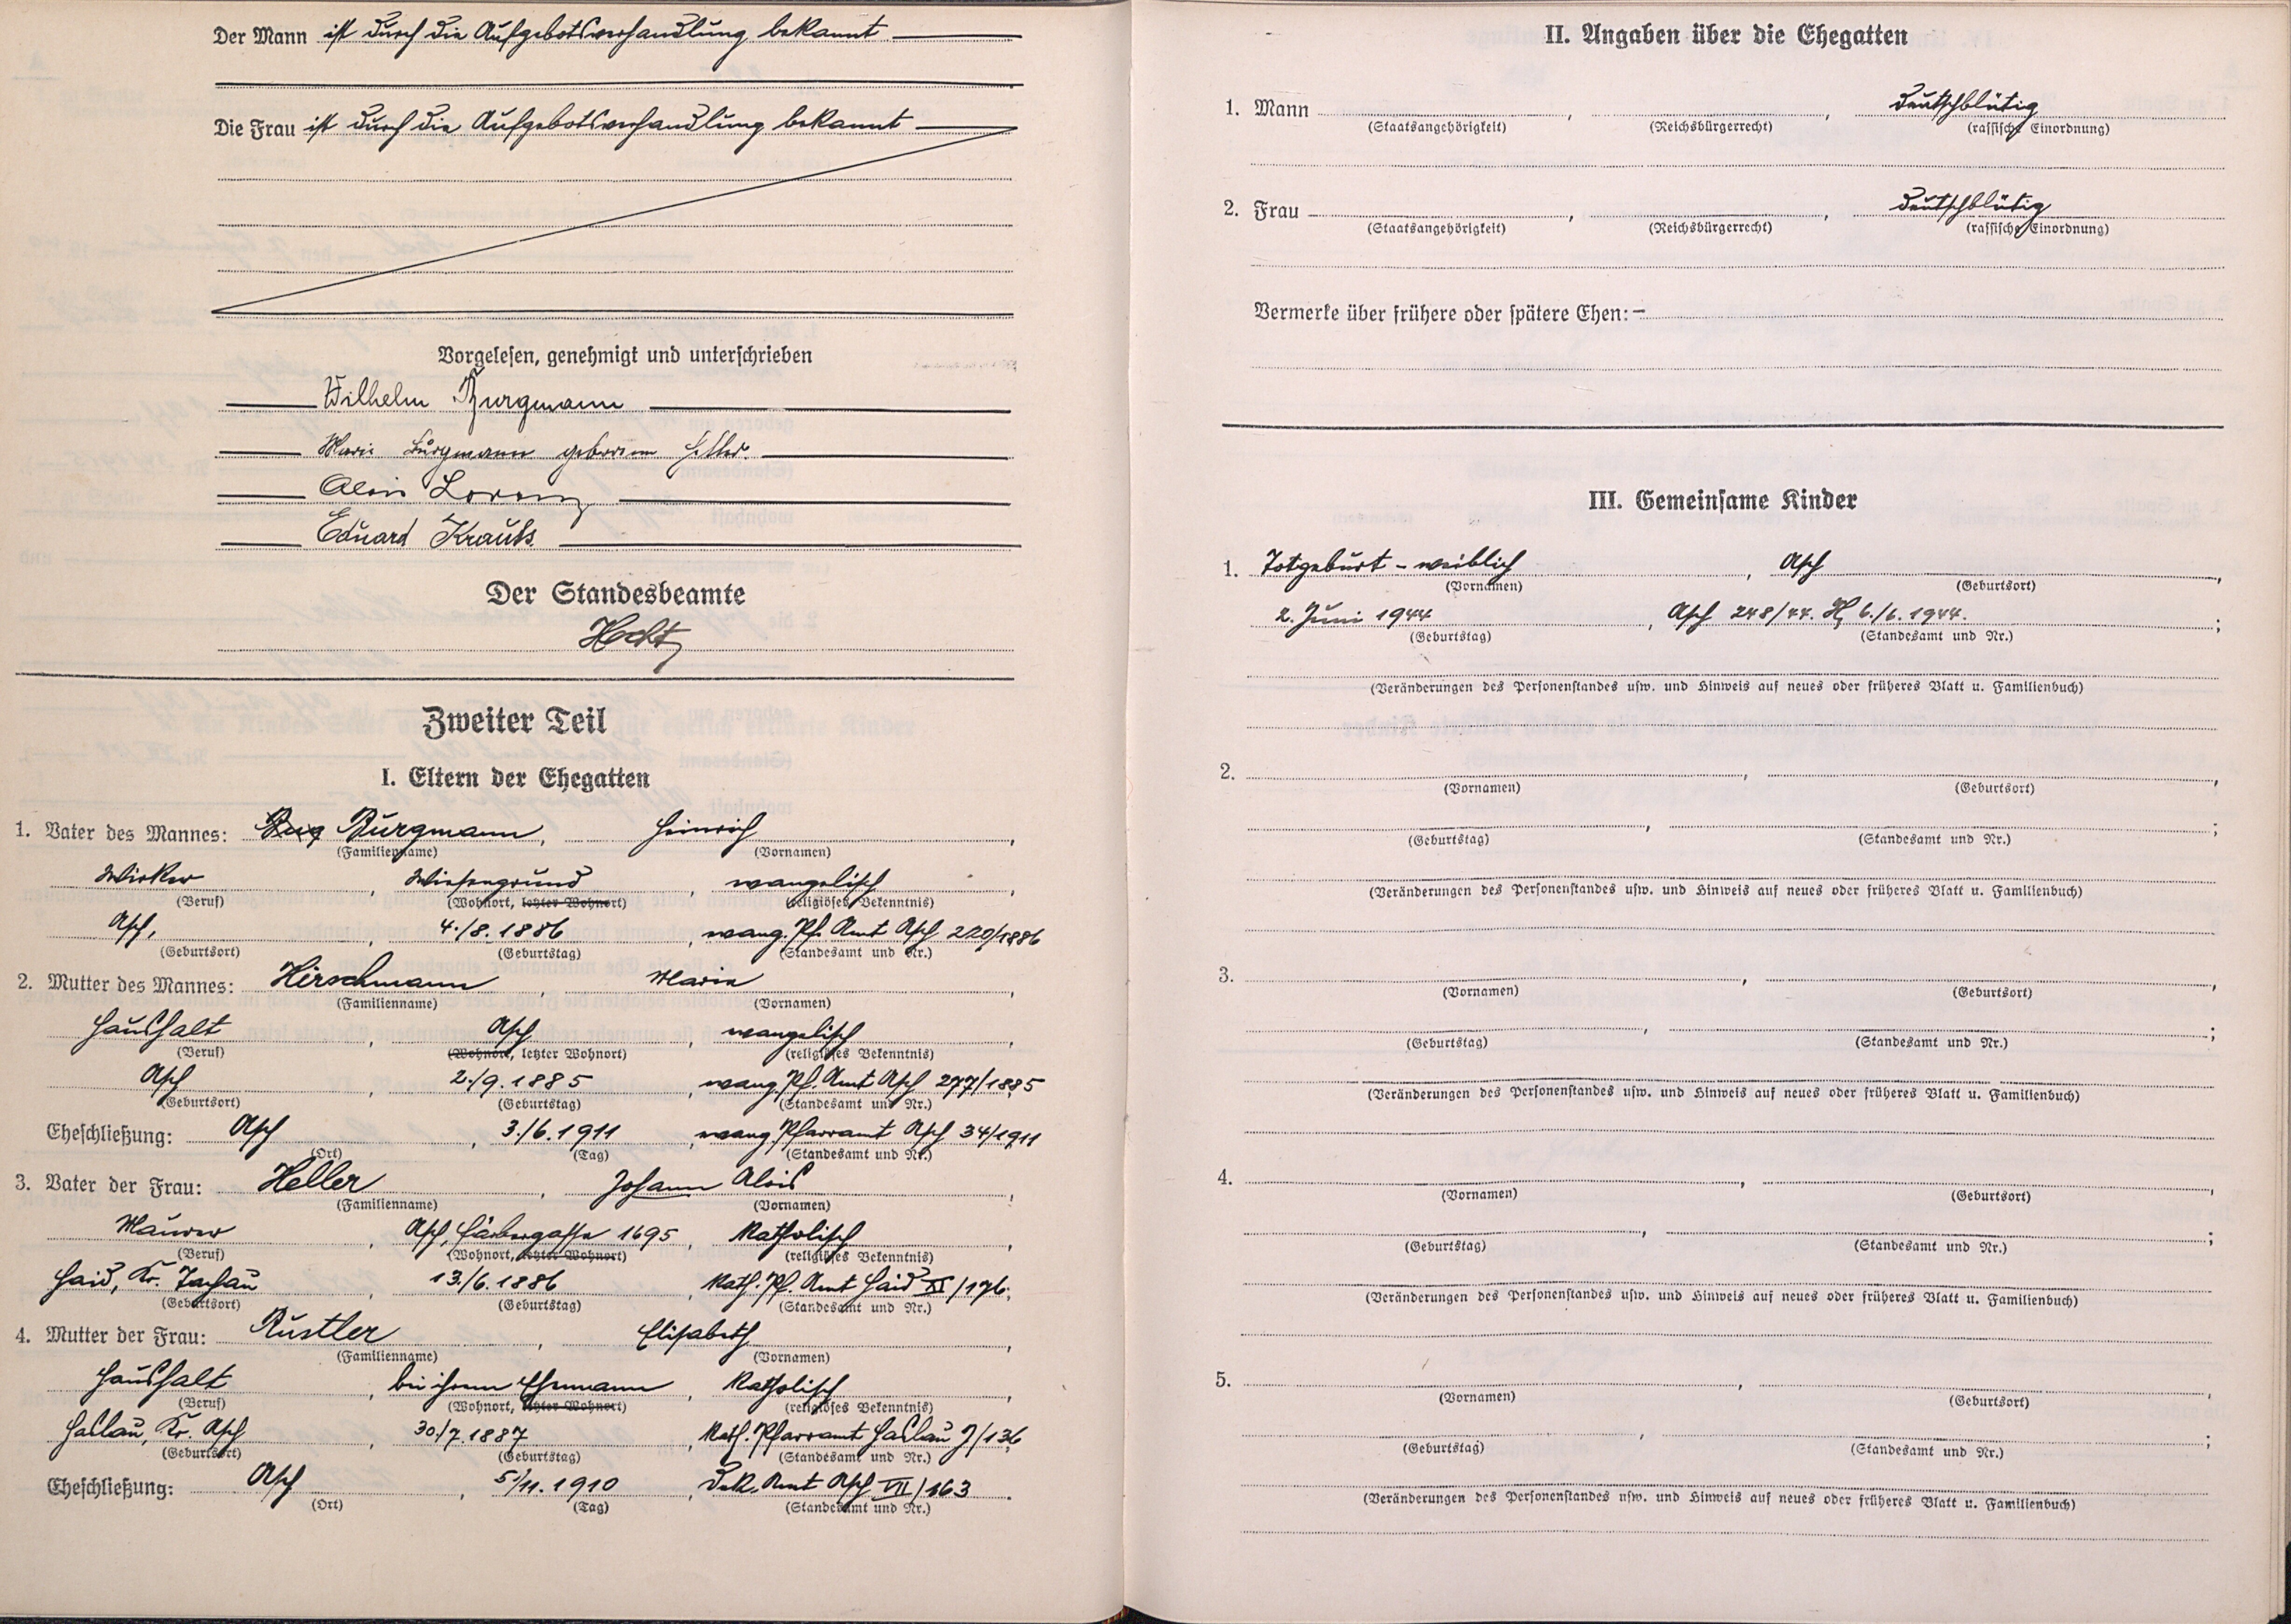 Der Mann ist durch die Aufgebotsverhandlung bekannt
Die Frau ist durch die Aufgebotsverhandlung bekannt
Vorgelesen, genehmigt und unterschrieben
Wilhelm Burgmann
Marie Burgmann geborene Heller.
Alois Lorenz
Eduard Krauß
Der Standesbeamte
Zweiter Teil
I. Eltern der Ehegatten
1. Vater des Mannes: Burg Burgmann, Heinrich,
(Familienname) (Vornamen)
Wirker, Wiesengrund, evangelisch,
(Beruf) (Wohnort, letzter Wohnort) (religiöses Bekenntnis)
Asch, 4./8.1886, evang. Pf. Amt Asch 220/1886
(Geburtsort) (Geburtstag) (Standesamt und Nr.)
2. Mutter des Mannes: Hirschmann, Marie,
(Familienname) (Vornamen)
Haushalt, Asch, evangelisch,
(Beruf) (Wohnort, letzter Wohnort) (religiöses Bekenntnis)
Asch, 2./9.1885, evang. Pf. Amt Asch 277/1885
(Geburtsort) (Geburtstag) (Standesamt und Nr.)
Eheschließung: Asch, 3./6.1911, evang. Pfarramt Asch 34/1911
(Ort) (Tag) (Standesamt und Nr.)
3. Vater der Frau: Heller, Johann Alois,
(Familienname) (Vornamen)
Maurer, Asch, Färbergasse 1695, katholisch,
(Beruf) (Wohnort, letzter Wohnort) (religiöses Bekenntnis)
Haid, Kr. Tachau, 13./6.1886, kath. Pf. Amt Haid XI/176.
(Geburtsort) (Geburtstag) (Standesamt und Nr.)
4. Mutter der Frau: Rustler, Elisabeth,
(Familienname) (Vornamen)
Haushalt, bei ihrem Ehemann, katholisch,
(Beruf) (Wohnort, letzter Wohnort) (religiöses Bekenntnis)
Haslau, Kr. Asch, 30./7.1887, kath. Pfarramt Haslau J/136
(Geburtsort) (Geburtstag) (Standesamt und Nr.)
Eheschließung: Asch, 5./11.1910, Dek. Amt Asch VII/163.
(Ort) (Tag) (Standesamt und Nr.)
II. Angaben über die Ehegatten
1. Mann , , deutschblütig
(Staatsangehörigkeit) (Reichsbürgerrecht) (rassische Einordnung)
2. Frau , , deutschblütig
(Staatsangehörigkeit) (Reichsbürgerrecht) (rassische Einordnung)
Vermerke über frühere oder spätere Ehen: –
III. Gemeinsame Kinder
1. Totgeburt - weiblich, Asch,
(Vornamen) (Geburtsort)
2. Juni 1944, Asch 248/44. H 6./6.1944.;
(Geburtstag) (Standesamt und Nr.)
(Veränderungen des Personenstandes usw. und Hinweis auf neues oder früheres Blatt u. Familienbuch)
2. , ,
(Vornamen) (Geburtsort)
, ;
(Geburtstag) (Standesamt und Nr.)
(Veränderungen des Personenstandes usw. und Hinweis auf neues oder früheres Blatt u. Familienbuch)
3. , ,
(Vornamen) (Geburtsort)
, ;
(Geburtstag) (Standesamt und Nr.)
(Veränderungen des Personenstandes usw. und Hinweis auf neues oder früheres Blatt u. Familienbuch)
4. , ,
(Vornamen) (Geburtsort)
, ;
(Geburtstag) (Standesamt und Nr.)
(Veränderungen des Personenstandes usw. und Hinweis auf neues oder früheres Blatt u. Familienbuch)
5. , ,
(Vornamen) (Geburtsort)
, ;
(Geburtstag) (Standesamt und Nr.)
(Veränderungen des Personenstandes usw. und Hinweis auf neues oder früheres Blatt u. Familienbuch)